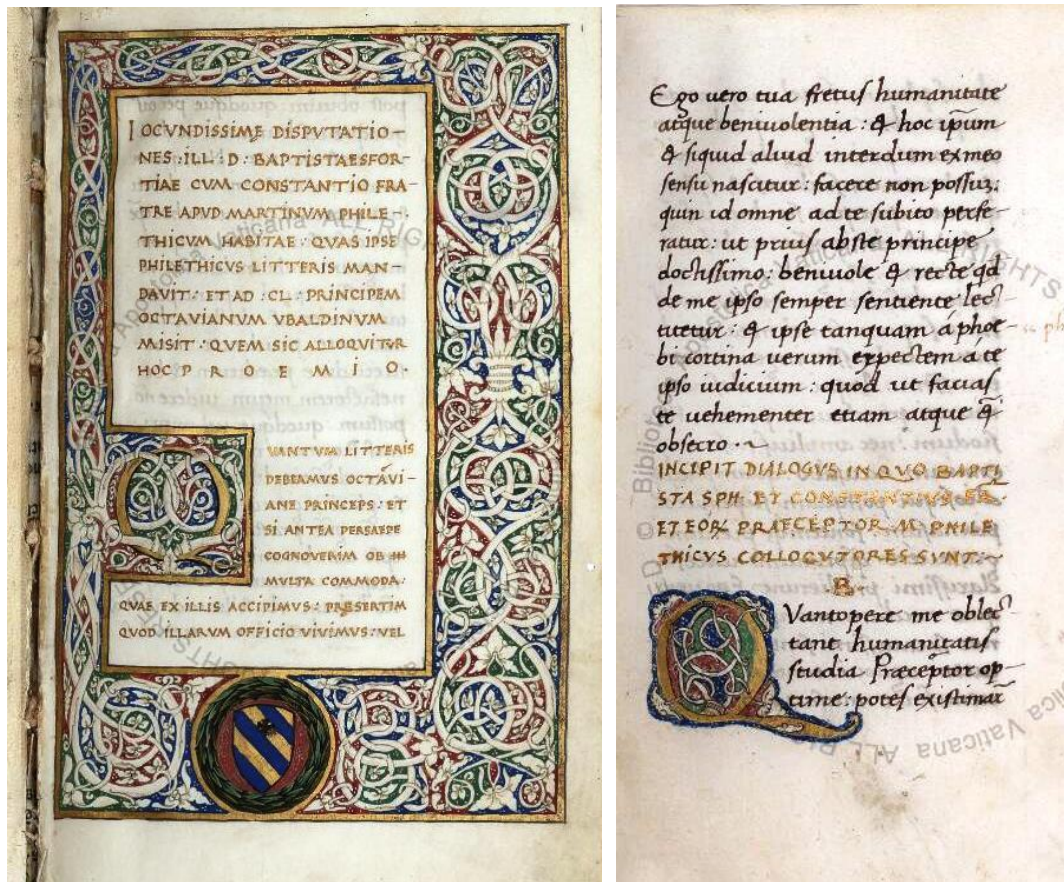 IOCVNDISSIMĘ DISPVTATIO-
NES : ILL : D : BAPTISTAESFOR-
TIAE CVM CONSTANTIO FRA-
TRE APVD MARTINVM PHILE-
THICVM HABITAE : QVAS IPSE
PHILETHICVS LITTERIS MAN-
DAVIT : ET AD : CL : PRINCIPEM
OCTAVIANVM VBALDINVM
MISIT : QVEM SIC ALLOQVITVR
HOC PROEMIO.
QVANTVM LITTERIS
DEBEAMVS OCTAVI-
ANE PRINCEPS : ET
SI ANTEA PERSAEPE
COGNOVERIM OB
MVLTA COMMODA :
QVAE EX ILLIS ACCIPIMVS : PRĘSERTIM
QVOD ILLARVM OFFICIO VIVIMVS : VEL
Ego uero tua fretus humanitate
atque beniuolentia : & hoc ip̄um
& siquid aliud interdum ex meo
sensu nascitur : facere non possuʒ :
quin id omne ad te subito perfe-
ratur : ut prius abste principe
doctissimo : beniuole & recte qd
de me ipso semper sentiente lec-
titetur : & ipse tanquam á phoe-
bi cortina uerum expectem á te
ipso iudicium : quod ut facias
te uehementer etiam atque &̄
obsecro .
INCIPIT DIALOGVS IN QVO BAPTI
STA SPH : ET CONSTANTIVS FR̄.
ET EOꝜ PRAECEPTOR .M. PHILE
THICVS COLLOQVTORES SVNT :
.B.
QVantopere me oblec
tant humanitatis
studia Praecep̄tor op-
time : potes existimar̄